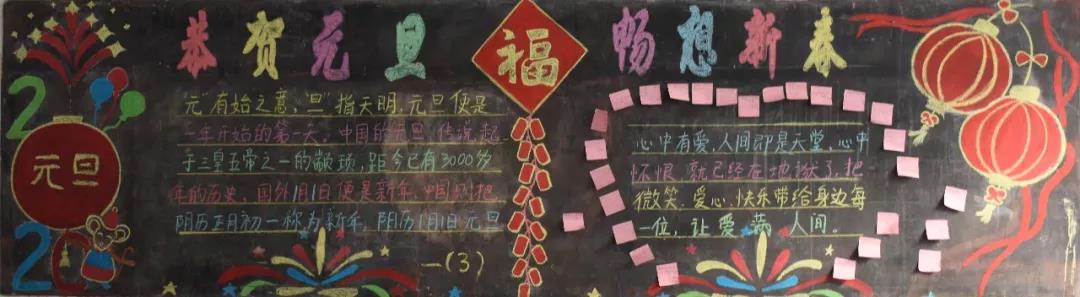 恭贺元旦
福
畅想新春
2020
元旦
"元"有始之意,"旦"指天明,元旦便是
一年开始的第一天。中国的元旦,传说起
于三皇五帝之一的颛顼,距今已有3000多
年的历史。国外1月1日便是新年,中国则把
阴历正月初一称为新年,阳历1月1日元旦
一(3)
心中有爱,人间即是天堂,心中
怀恨,就已经在地狱了,把
微笑、爱心、快乐带给身边每
一位,让爱满人间。